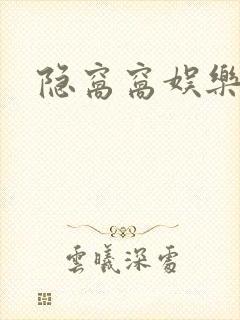 隐窝窝娱樂
雲曦深處